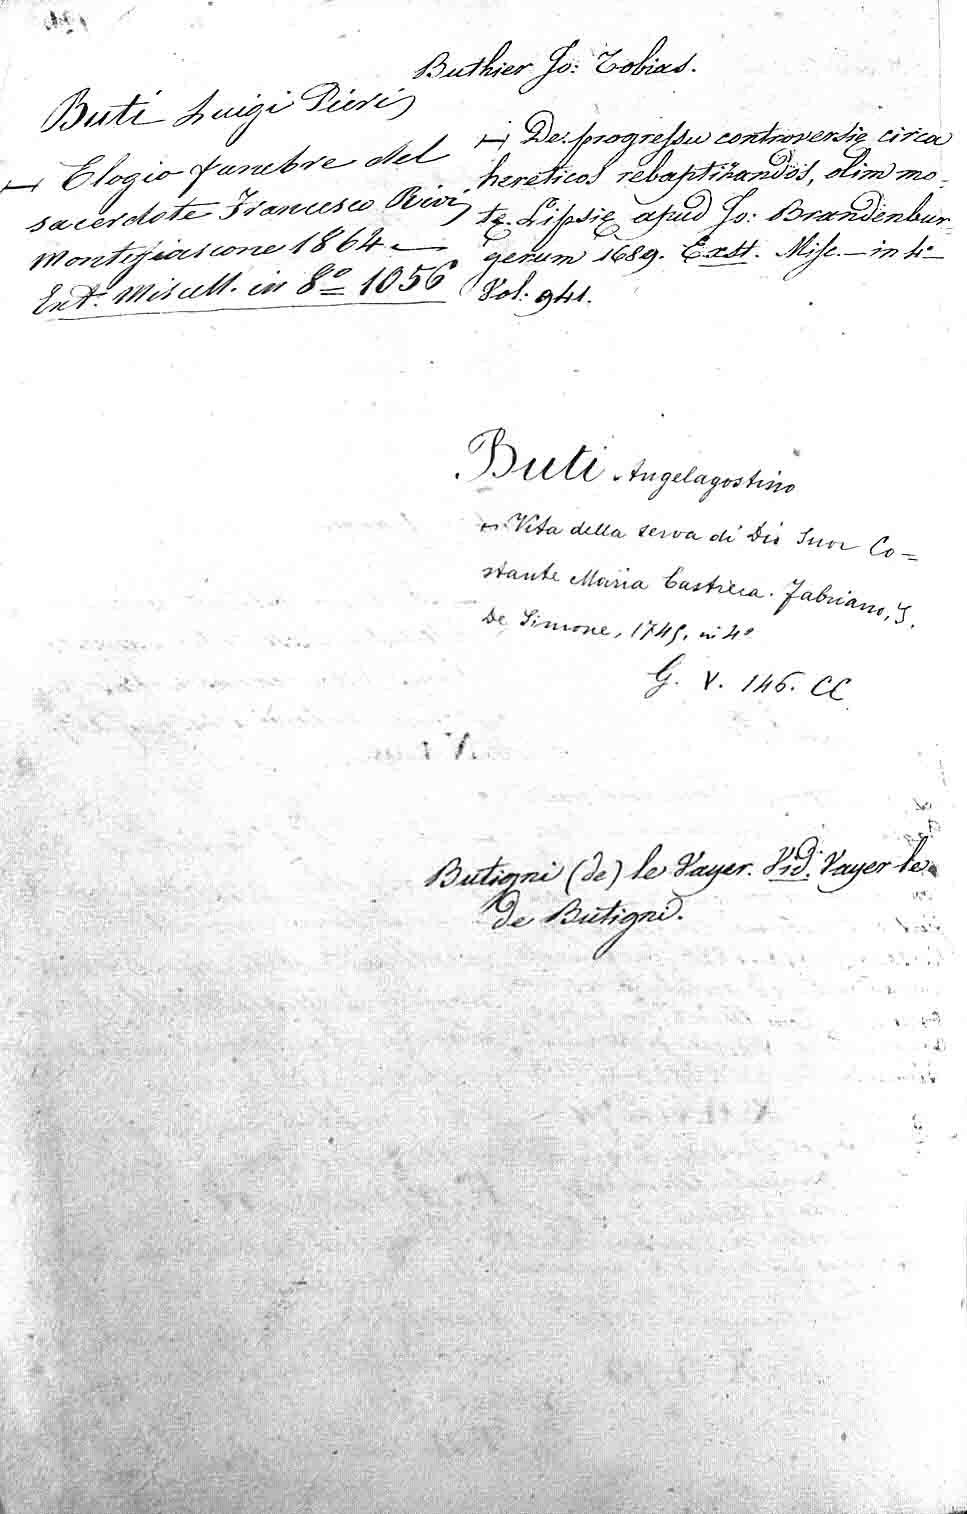 Buti Luigi Pieri
— Elogio funebre del
sacerdote Francesco Rivi
Montefiascone 1864 —
Ext. Miscell. in 8º 1056
Buthier Jo: Tobias.
— De progressu controversię circa
hereticos rebaptizandos, olim mo-
tę. Lipsię apud Jo: Brandenbur-
gerum 1689. Exst. Misc. — in 4º
Vol. 941.
Buti Angelagostino
— Vita della serva di Dio Suor Co=
stante Maria Castreca. Fabriano, G.
De Simone, 1745. in 4º
G. V. 146. CC
Butigni (de) le Vayer. Vid. Vayer le
de Butigni.